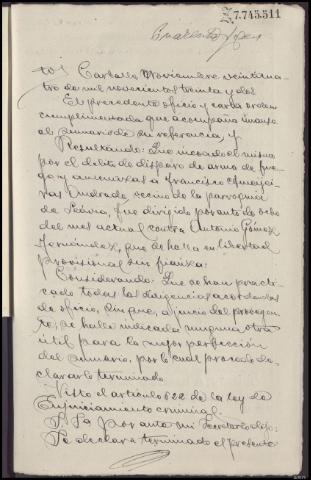 Z.7.745.511
Cuarenta y seis
tos Carballo Noviembre veinticua-
tro de mil novecientos treinta y dos
El precedente oficio y carta orden
cumplimentada que acompaña únase
al sumario de su referencia, y
Resultando: Que incoado el mismo
por el delito de disparo de arma de fue-
go y amenazas a Francisco
Andrade, vecino de la parroquia
de fue dirigido por auto de ocho
del mes actual contra Antonio Gómez
Fernández, que se halla en libertad
provisional sin fianza:
Considerando: Que se han practi-
cado todas las diligencias acordadas
de oficio, sin que, a juicio del proveyen-
te, se halle indicada ninguna otra
útil para la mejor perfección
del sumario, por lo cual procede de-
clararlo terminado
Visto el artículo 622 de la ley de
Enjuiciamiento criminal.
S. Sª por ante mí Secretario dijo:
Se declara terminado el presente